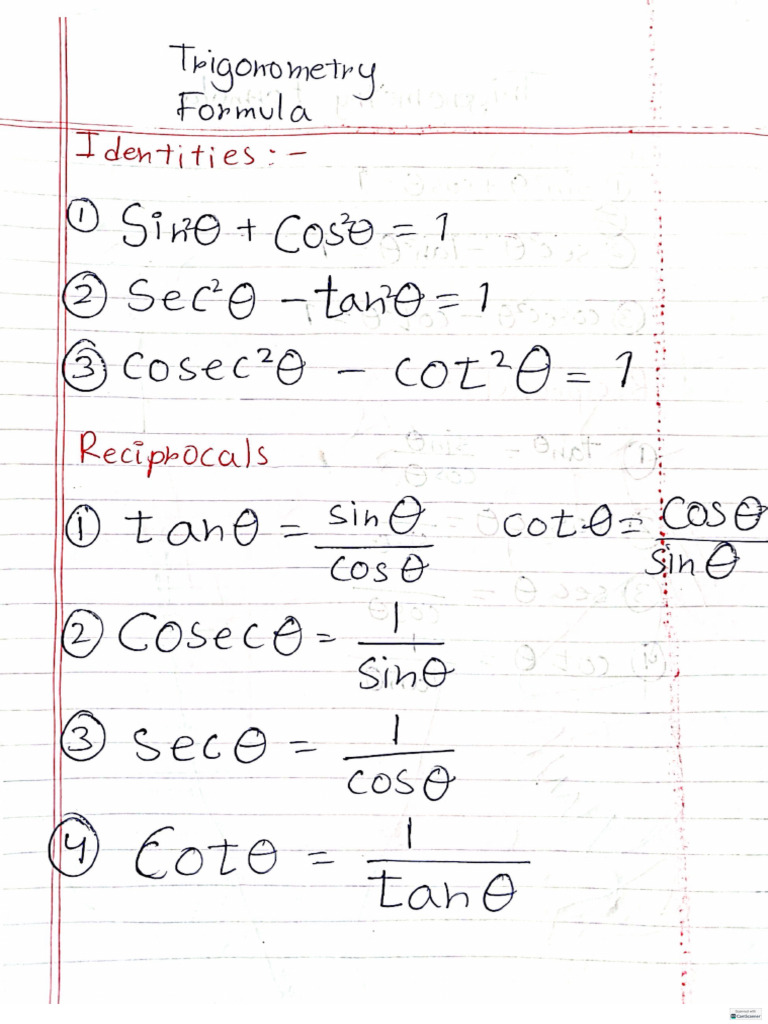 Trigonometry
Formula
Identities :-
① Sin²θ + Cos²θ = 1
② Sec²θ - tan²θ = 1
③ Cosec²θ - cot²θ = 1
Reciprocals
① tanθ = sinθ/cosθ cotθ = cosθ/sinθ
② Cosecθ = 1/sinθ
③ secθ = 1/cosθ
④ Cotθ = 1/tanθ
Scanned with
CamScanner